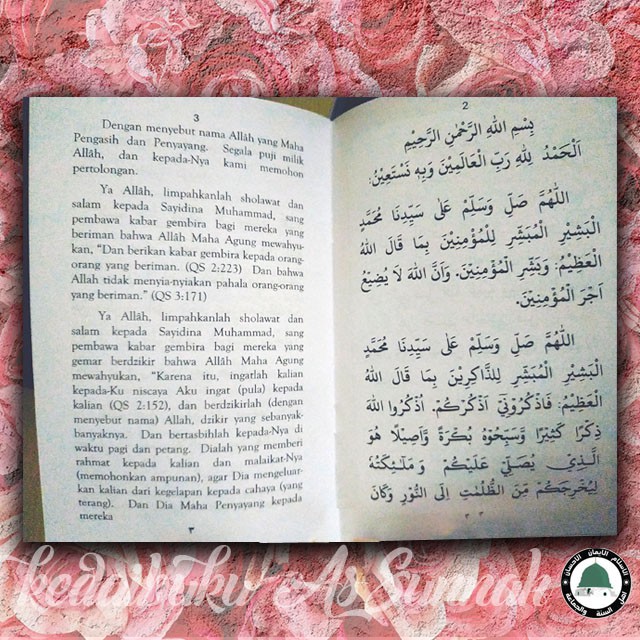 3
Dengan menyebut nama Allâh yang Maha
Pengasih dan Penyayang. Segala puji milik
Allâh, dan kepada-Nya kami memohon
pertolongan.
Ya Allâh, limpahkanlah sholawat dan
salam kepada Sayidina Muhammad, sang
pembawa kabar gembira bagi mereka yang
beriman bahwa Allâh Maha Agung mewahyu-
kan, “Dan berikan kabar gembira kepada orang-
orang yang beriman. (QS 2:223) Dan bahwa
Allah tidak menyia-nyiakan pahala orang-orang
yang beriman.” (QS 3:171)
Ya Allâh, limpahkanlah sholawat dan
salam kepada Sayidina Muhammad, sang
pembawa kabar gembira bagi mereka yang
gemar berdzikir bahwa Allâh Maha Agung
mewahyukan, “Karena itu, ingatlah kalian
kepada-Ku niscaya Aku ingat (pula) kepada
kalian (QS 2:152), dan berdzikirlah (dengan
menyebut nama) Allah, dzikir yang sebanyak-
banyaknya. Dan bertasbihlah kepada-Nya di
waktu pagi dan petang. Dialah yang memberi
rahmat kepada kalian dan malaikat-Nya
(memohonkan ampunan), agar Dia mengeluar-
kan kalian dari kegelapan kepada cahaya (yang
terang). Dan Dia Maha Penyayang kepada
mereka
٣
2
بِسْمِ اللهِ الرَّحْمٰنِ الرَّحِيْمِ
اَلْحَمْدُ لِلّٰهِ رَبِّ الْعَالَمِيْنَ وَبِهِ نَسْتَعِيْنُ.
اَللّٰهُمَّ صَلِّ وَسَلِّمْ عَلٰى سَيِّدِنَا مُحَمَّدٍ
الْبَشِيْرِ الْمُبَشِّرِ لِلْمُؤْمِنِيْنَ بِمَا قَالَ اللهُ
الْعَظِيْمُ: وَبَشِّرِ الْمُؤْمِنِيْنَ. وَأَنَّ اللهَ لَا يُضِيْعُ
أَجْرَ الْمُؤْمِنِيْنَ.
اَللّٰهُمَّ صَلِّ وَسَلِّمْ عَلٰى سَيِّدِنَا مُحَمَّدٍ
الْبَشِيْرِ الْمُبَشِّرِ لِلذَّاكِرِيْنَ بِمَا قَالَ اللهُ
الْعَظِيْمُ: فَاذْكُرُوْنِيْ أَذْكُرْكُمْ. اُذْكُرُوا اللهَ
ذِكْرًا كَثِيْرًا وَّسَبِّحُوْهُ بُكْرَةً وَّأَصِيْلًا هُوَ
الَّذِيْ يُصَلِّيْ عَلَيْكُمْ وَمَلٰئِكَتُهُ
لِيُخْرِجَكُمْ مِّنَ الظُّلُمٰتِ اِلَى النُّوْرِ وَكَانَ
kedaiKaku AsSunnah
الإسلام الإيمان الإحسان
أهل السنة والجماعة